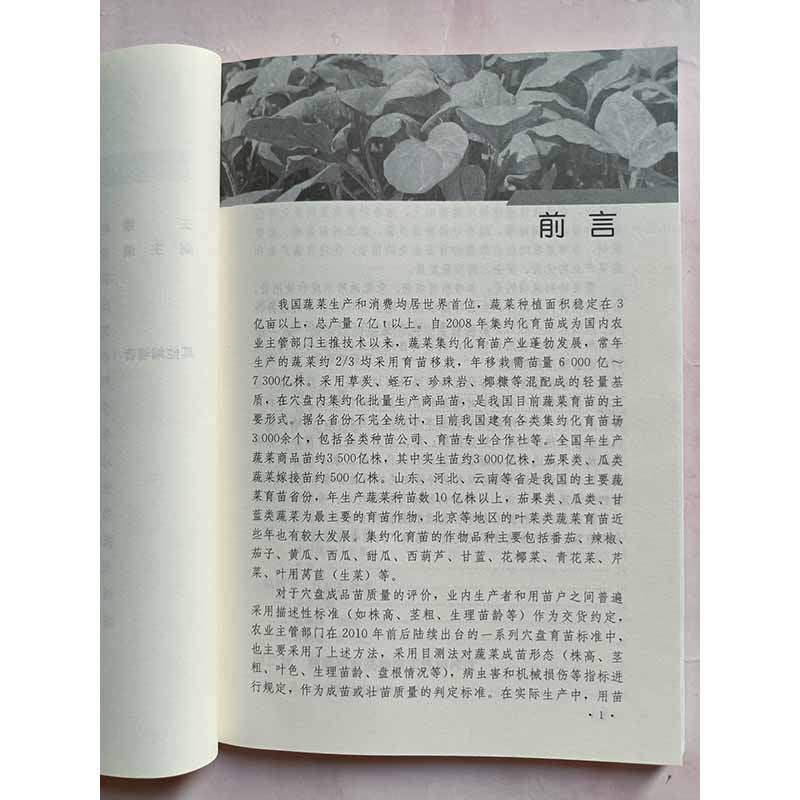 前言
我国蔬菜生产和消费均居世界首位，蔬菜种植面积稳定在 3
亿亩以上，总产量 7 亿 t 以上。自 2008 年集约化育苗成为国内农
业主管部门主推技术以来，蔬菜集约化育苗产业蓬勃发展，常年
生产的蔬菜约 2/3 均采用育苗移栽，年移栽需苗量 6 000 亿～
7 300亿株。采用草炭、蛭石、珍珠岩、椰糠等混配成的轻量基
质，在穴盘内集约化批量生产商品苗，是我国目前蔬菜育苗的主
要形式。据各省份不完全统计，目前我国建有各类集约化育苗场
3 000余个，包括各类种苗公司、育苗专业合作社等。全国年生产
蔬菜商品苗约3 500亿株，其中实生苗约3 000亿株，茄果类、瓜类
蔬菜嫁接苗约 500 亿株。山东、河北、云南等省是我国的主要蔬
菜育苗省份，年生产蔬菜种苗数 10 亿株以上，茄果类、瓜类、甘
蓝类蔬菜为最主要的育苗作物，北京等地区的叶菜类蔬菜育苗近
些年也有较大发展。集约化育苗的作物品种主要包括番茄、辣椒、
茄子、黄瓜、西瓜、甜瓜、西葫芦、甘蓝、花椰菜、青花菜、芹
菜、叶用莴苣（生菜）等。
对于穴盘成品苗质量的评价，业内生产者和用苗户之间普遍
采用描述性标准（如株高、茎粗、生理苗龄等）作为交货约定，
农业主管部门在 2010 年前后陆续出台的一系列穴盘育苗标准中，
也主要采用了上述方法，采用目测法对蔬菜成苗形态（株高、茎
粗、叶色、生理苗龄、盘根情况等），病虫害和机械损伤等指标进
行规定，作为成苗或壮苗质量的判定标准。在实际生产中，用苗
· 1 ·